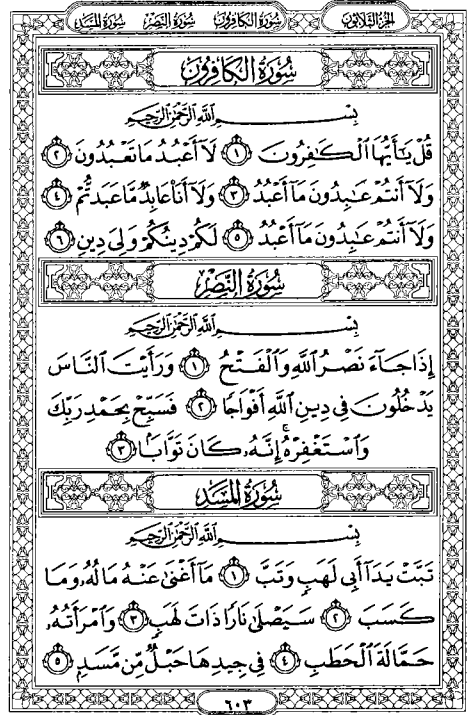 الجزء الثلاثون سورة الكافرون سورة النصر سورة المسد
سُورَةُ الكَافِرُون
بِسْمِ ٱللَّهِ ٱلرَّحْمَٰنِ ٱلرَّحِيمِ
قُلْ يَٰٓأَيُّهَا ٱلْكَٰفِرُونَ ١ لَآ أَعْبُدُ مَا تَعْبُدُونَ ٢
وَلَآ أَنتُمْ عَٰبِدُونَ مَآ أَعْبُدُ ٣ وَلَآ أَنَا۠ عَابِدٌ مَّا عَبَدتُّمْ ٤
وَلَآ أَنتُمْ عَٰبِدُونَ مَآ أَعْبُدُ ٥ لَكُمْ دِينُكُمْ وَلِىَ دِينِ ٦
سُورَةُ النَّصْر
بِسْمِ ٱللَّهِ ٱلرَّحْمَٰنِ ٱلرَّحِيمِ
إِذَا جَآءَ نَصْرُ ٱللَّهِ وَٱلْفَتْحُ ١ وَرَأَيْتَ ٱلنَّاسَ
يَدْخُلُونَ فِى دِينِ ٱللَّهِ أَفْوَاجًا ٢ فَسَبِّحْ بِحَمْدِ رَبِّكَ
وَٱسْتَغْفِرْهُ ۚ إِنَّهُۥ كَانَ تَوَّابًۢا ٣
سُورَةُ المَسَد
بِسْمِ ٱللَّهِ ٱلرَّحْمَٰنِ ٱلرَّحِيمِ
تَبَّتْ يَدَآ أَبِى لَهَبٍ وَتَبَّ ١ مَآ أَغْنَىٰ عَنْهُ مَالُهُۥ وَمَا
كَسَبَ ٢ سَيَصْلَىٰ نَارًا ذَاتَ لَهَبٍ ٣ وَٱمْرَأَتُهُۥ
حَمَّالَةَ ٱلْحَطَبِ ٤ فِى جِيدِهَا حَبْلٌ مِّن مَّسَدٍۭ ٥
٦٠٣